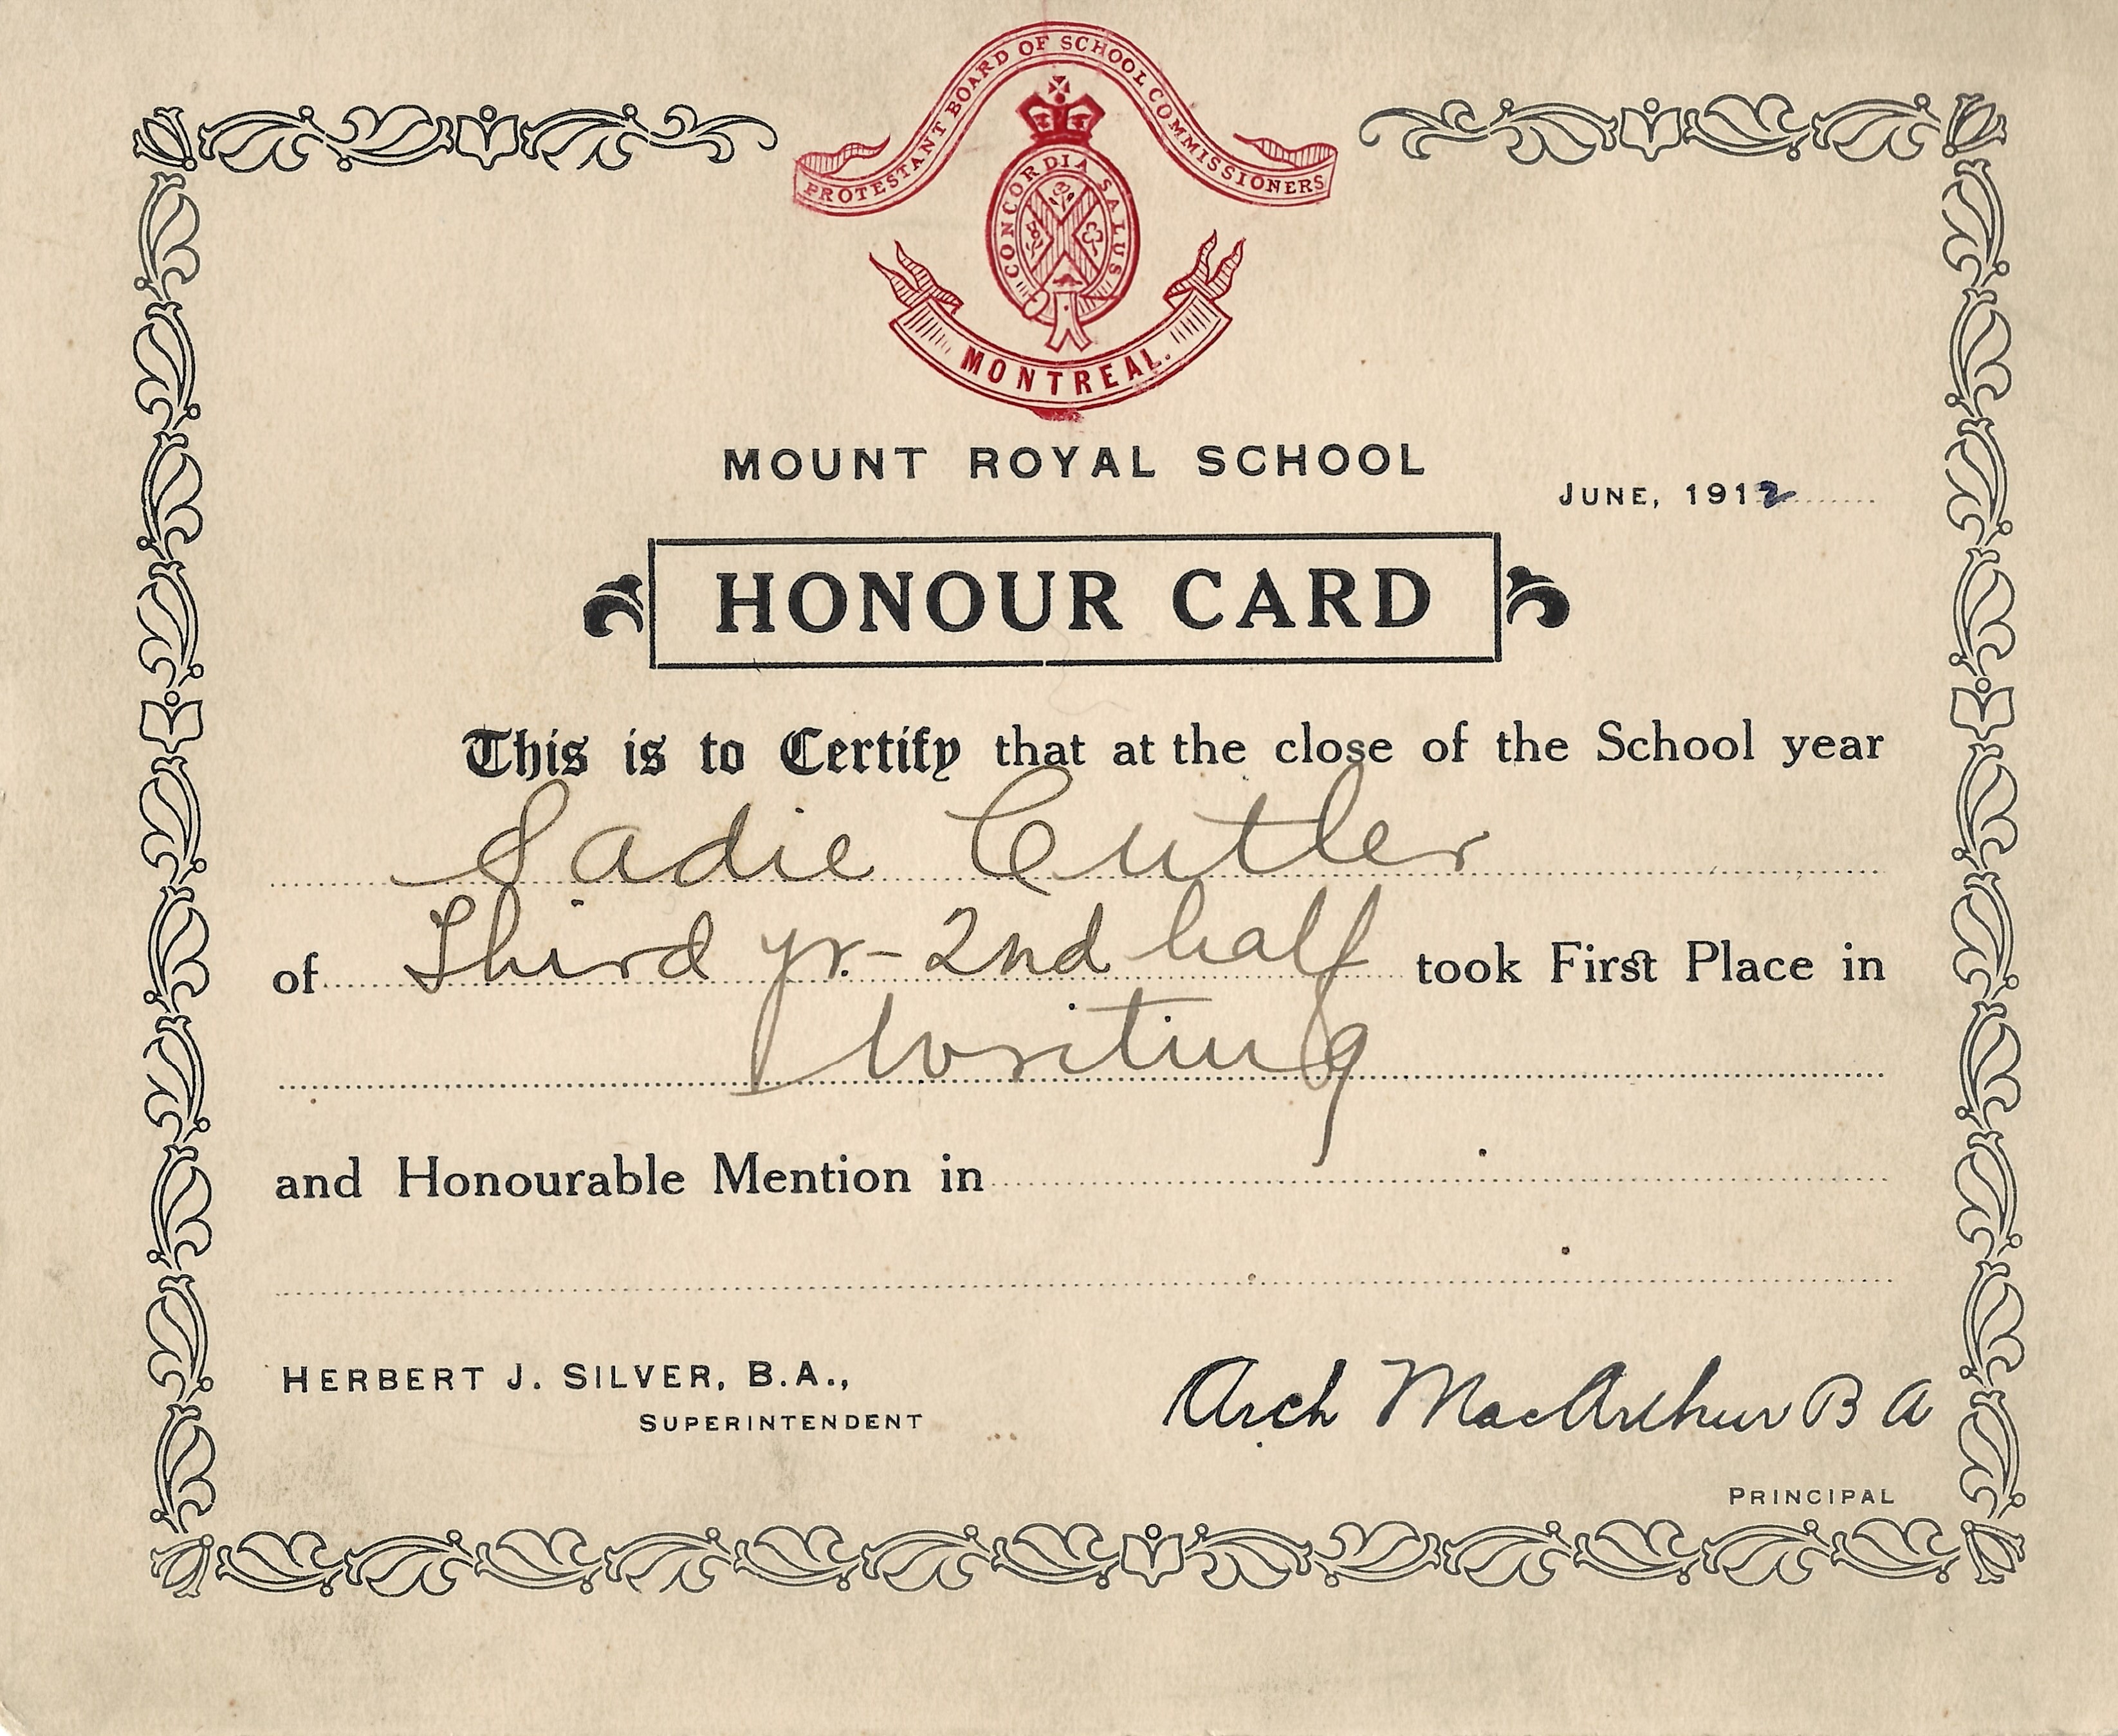 PROTESTANT BOARD OF SCHOOL COMMISSIONERS
CONCORDIA SALUS
MONTREAL.
MOUNT ROYAL SCHOOL
JUNE, 1912
HONOUR CARD
This is to Certify that at the close of the School year
Sadie Cutler
of Third yr. - 2nd half took First Place in
Writing
and Honourable Mention in
HERBERT J. SILVER, B.A.,
SUPERINTENDENT
Arch MacArthur B A
PRINCIPAL